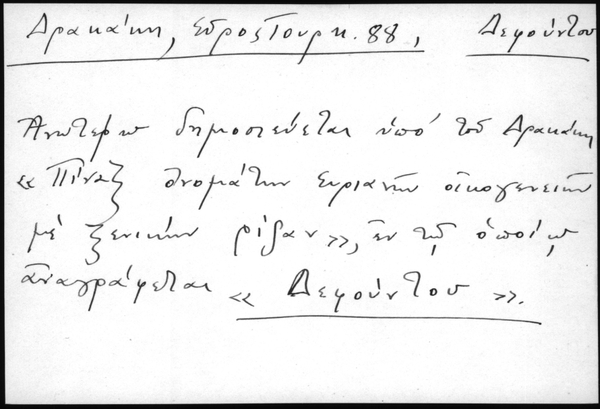 Δρακάκη, Σῦρος Τουρκ. 88, Δεφούντου
Ἀνωτέρω δημοσιεύεται ὑπό τοῦ Δρακάκη
« Πίναξ ὀνομάτων Συριανῶν οἰκογενειῶν
μέ ξενικήν ρίζαν», ἐν τῷ ὁποίῳ
ἀναγράφεται « Δεφούντου ».